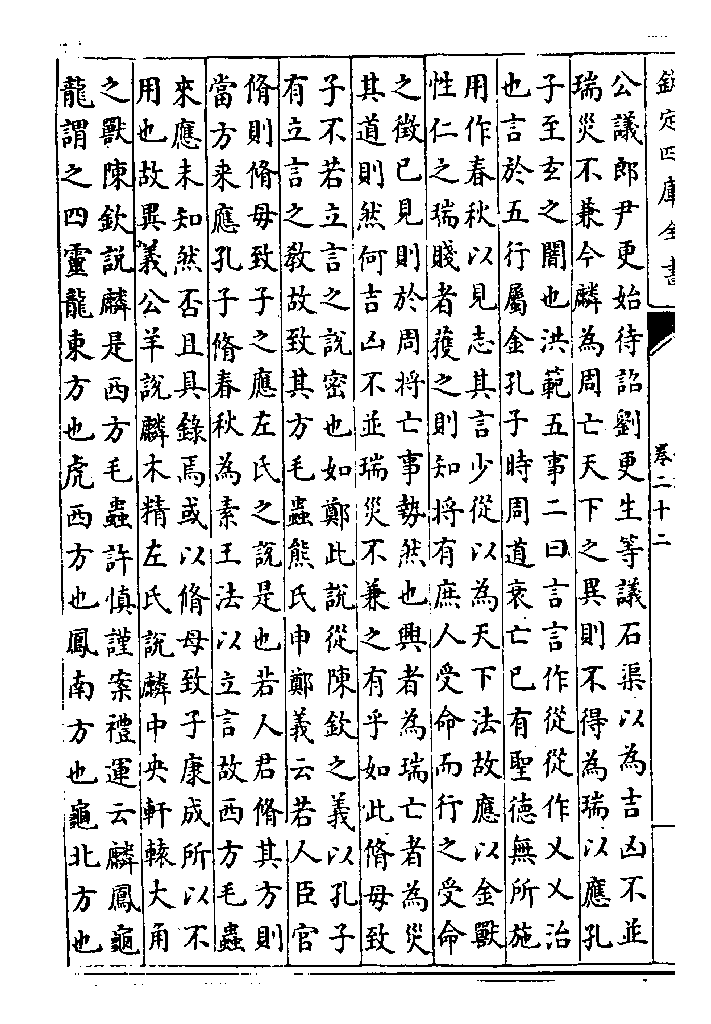 欽定四庫全書
卷二十二
公議郎尹更始待詔劉更生等議石渠以為吉凶不並
瑞災不兼今麟為周亡天下之異則不得為瑞以應孔
子至玄之闇也洪範五事二曰言言作從從作乂乂治
也言於五行屬金孔子時周道衰亡已有聖德無所施
用作春秋以見志其言少從以為天下法故應以金獸
性仁之瑞賤者獲之則知將有庶人受命而行之受命
之徵已見則於周將亡事勢然也興者為瑞亡者為災
其道則然何吉凶不並瑞災不兼之有乎如此脩母致
子不若立言之說密也如鄭此說從陳欽之義以孔子
有立言之教故致其方毛蟲熊氏申鄭義云若人臣官
脩則脩母致子之應左氏之說是也若人君脩其方則
當方来應孔子脩春秋為素王法以立言故西方毛蟲
來應未知然否且具錄焉或以脩母致子康成所以不
用也故異義公羊說麟木精左氏說麟中央軒轅大角
之獸陳欽說麟是西方毛蟲許慎謹案禮運云麟鳳龜
龍謂之四靈龍東方也虎西方也鳳南方也龜北方也